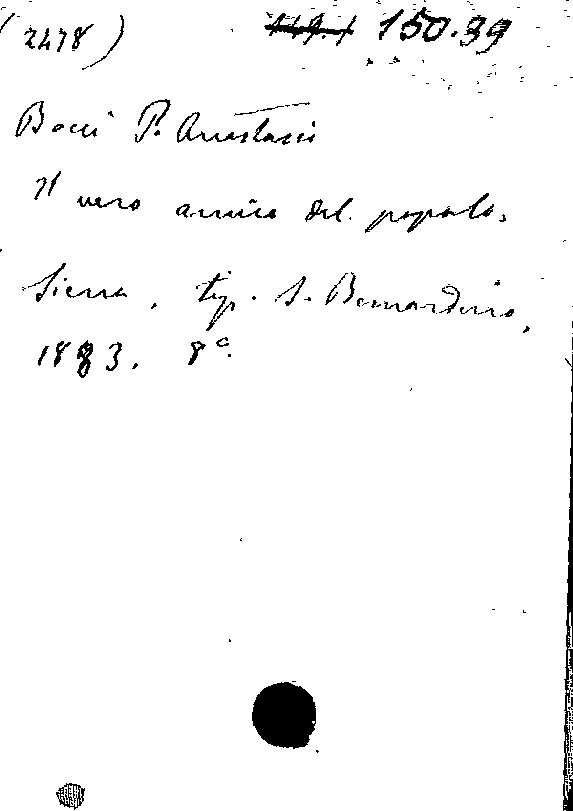 (2478) 149.1 150.39
Bocci P. Anastasi
Il vero amico del popolo.
Siena, tip. S. Bernardino,
1883. 8°.